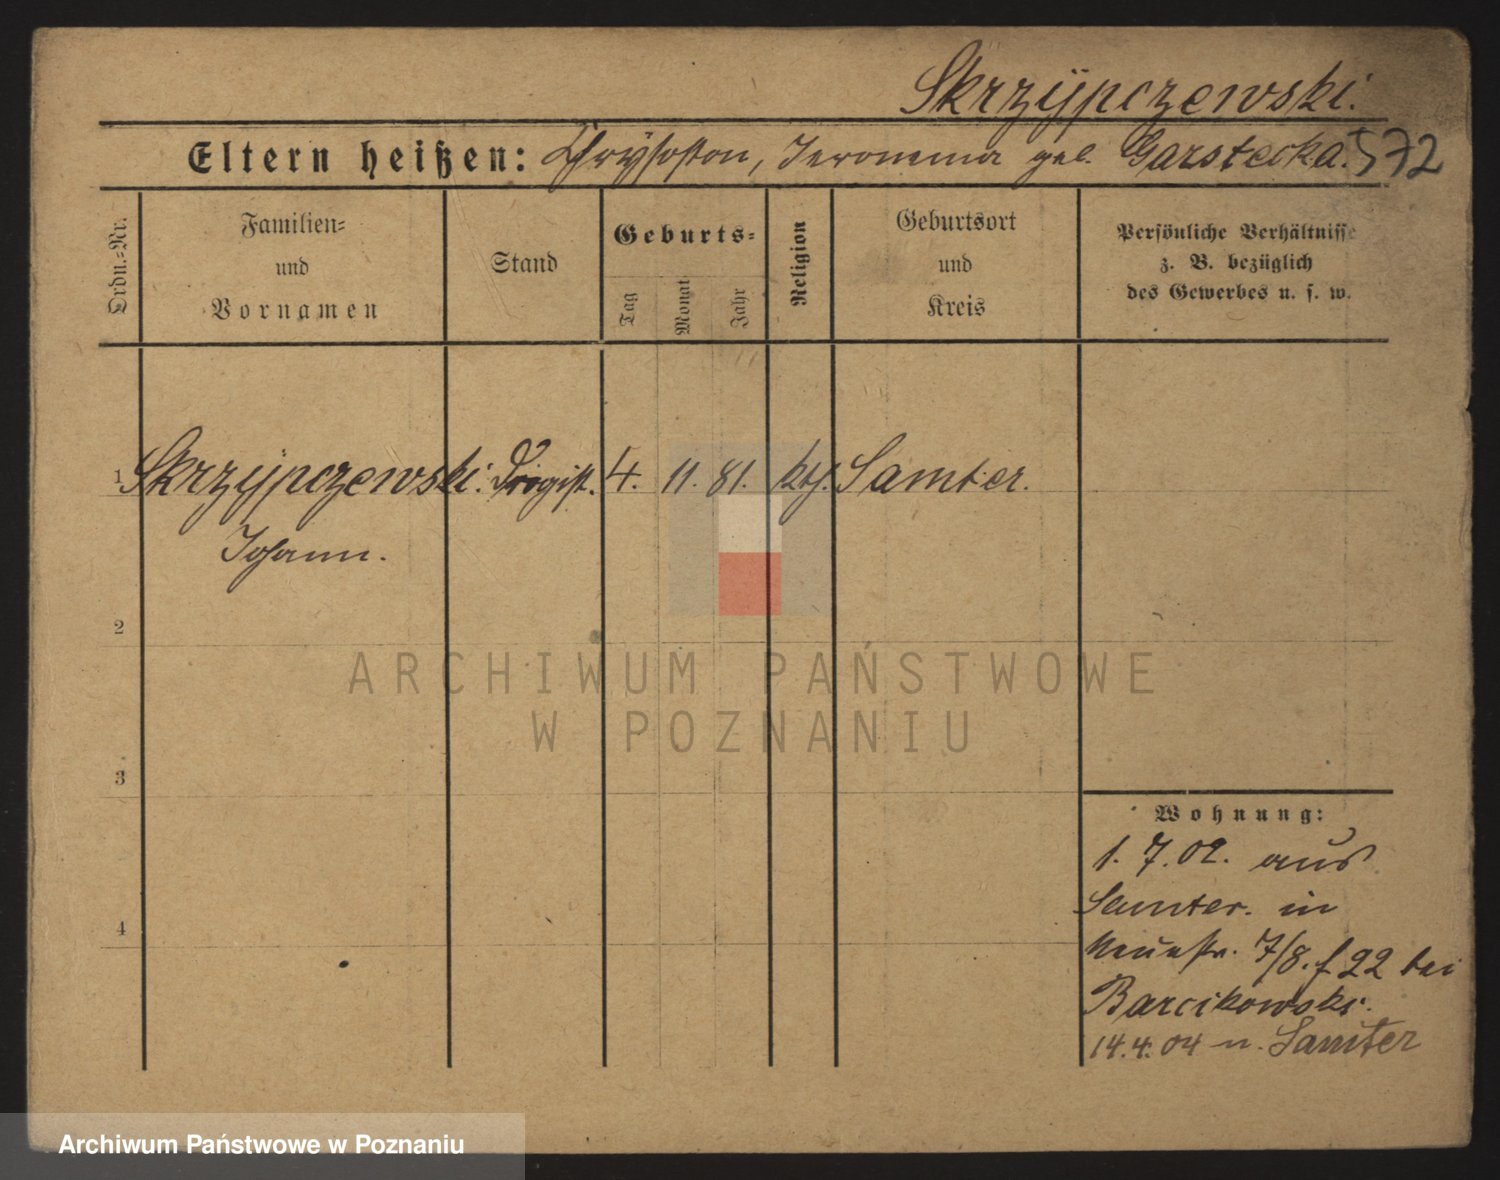 Skrzypczewski.
Eltern heißen: Chrysostom, Jeromina geb. Garstecka. 572
Ordn.-Nr.
Familien-
und
Vornamen
Stand
Geburts-
Tag
Monat
Jahr
Religion
Geburtsort
und
Kreis
Persönliche Verhältnisse
z. B. bezüglich
des Gewerbes u. s. w.
1 Skrzypczewski. Drogist. 4. 11. 81. kth. Samter.
Johann.
2
ARCHIWUM PAŃSTWOWE
W POZNANIU
3
Wohnung:
1. 7. 02. aus
Samter. in
4
Neuestr. 7/8. f 22 bei
Barcikowski.
14.4.04 n. Samter
Archiwum Państwowe w Poznaniu